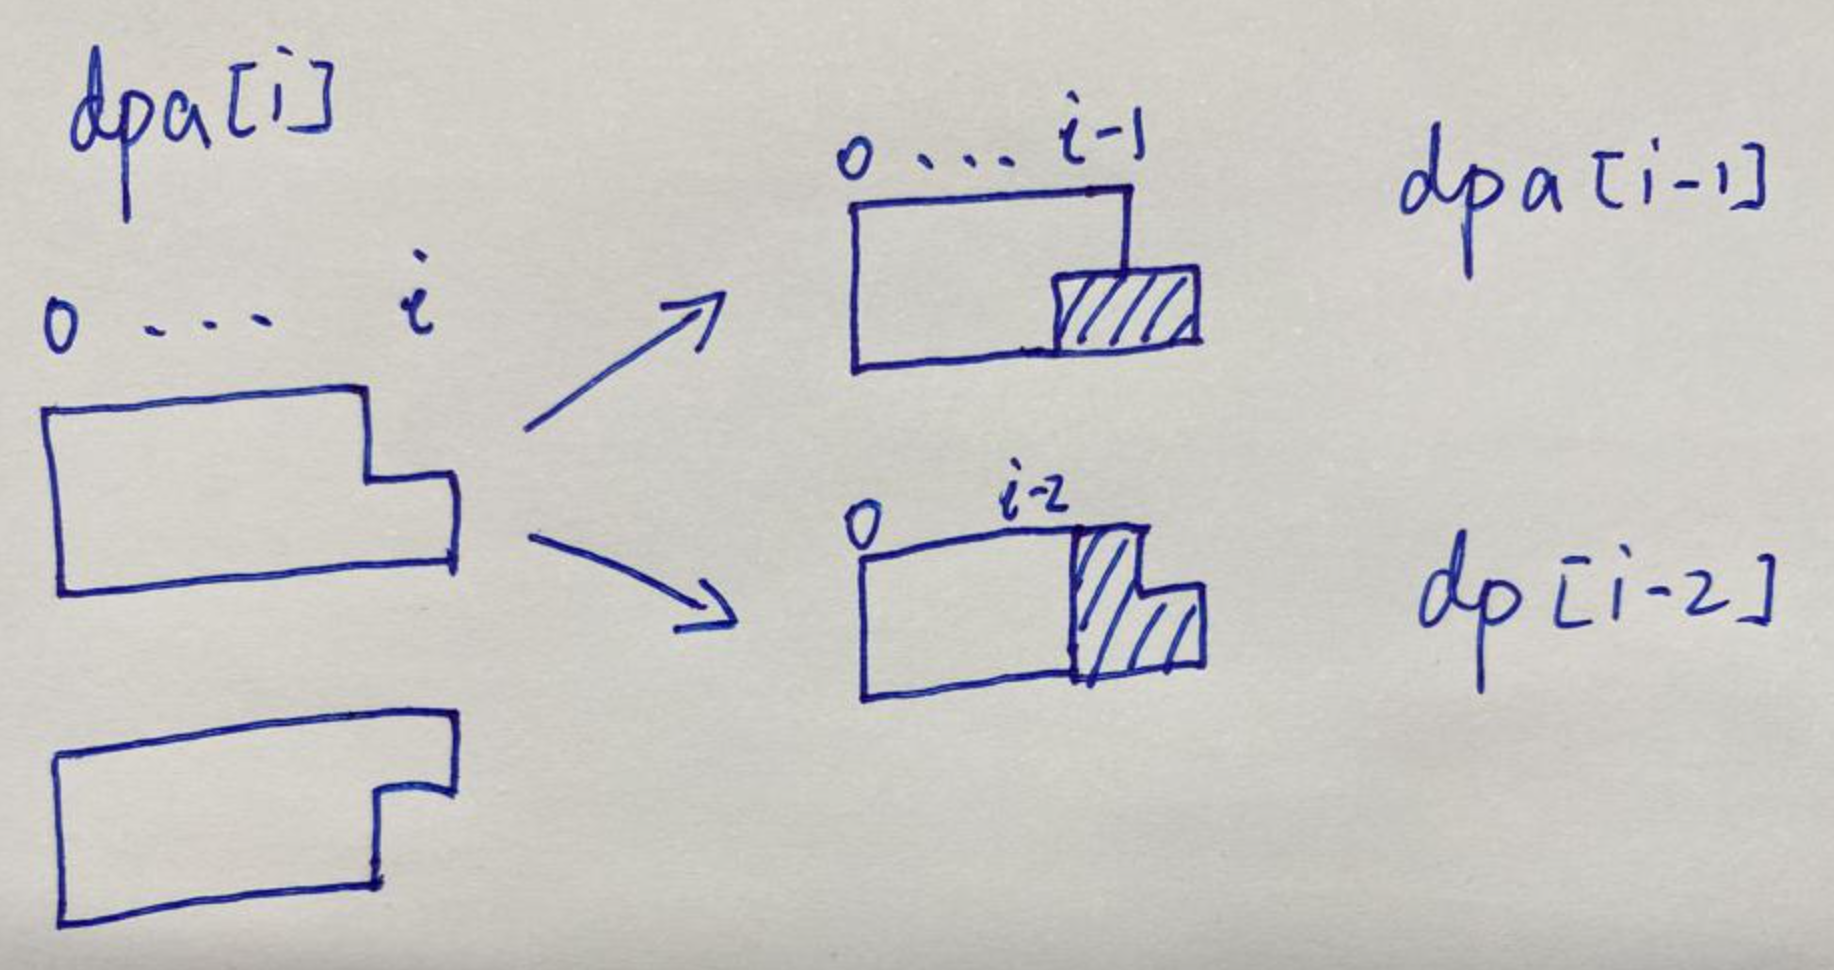 dpa[i]
0 ... i
0 ... i-1
dpa[i-1]
0 i-2
dp[i-2]